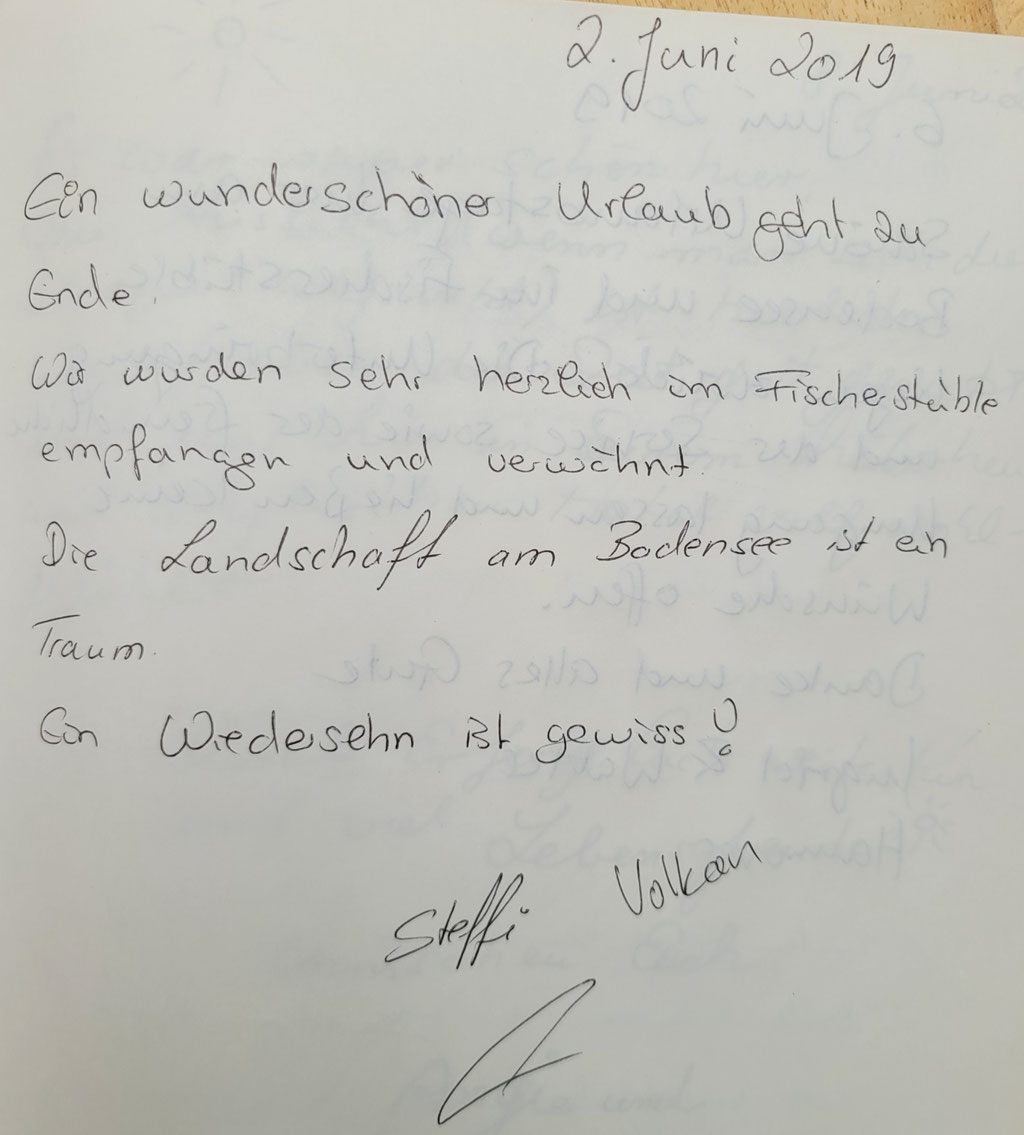 2. Juni 2019
Ein wunderschöner Urlaub geht zu
Ende.
Wir wurden sehr herzlich im Fischerstüble
empfangen und verwöhnt.
Die Landschaft am Bodensee ist ein
Traum.
Ein Wiedersehn ist gewiss!
Steffi Volkan